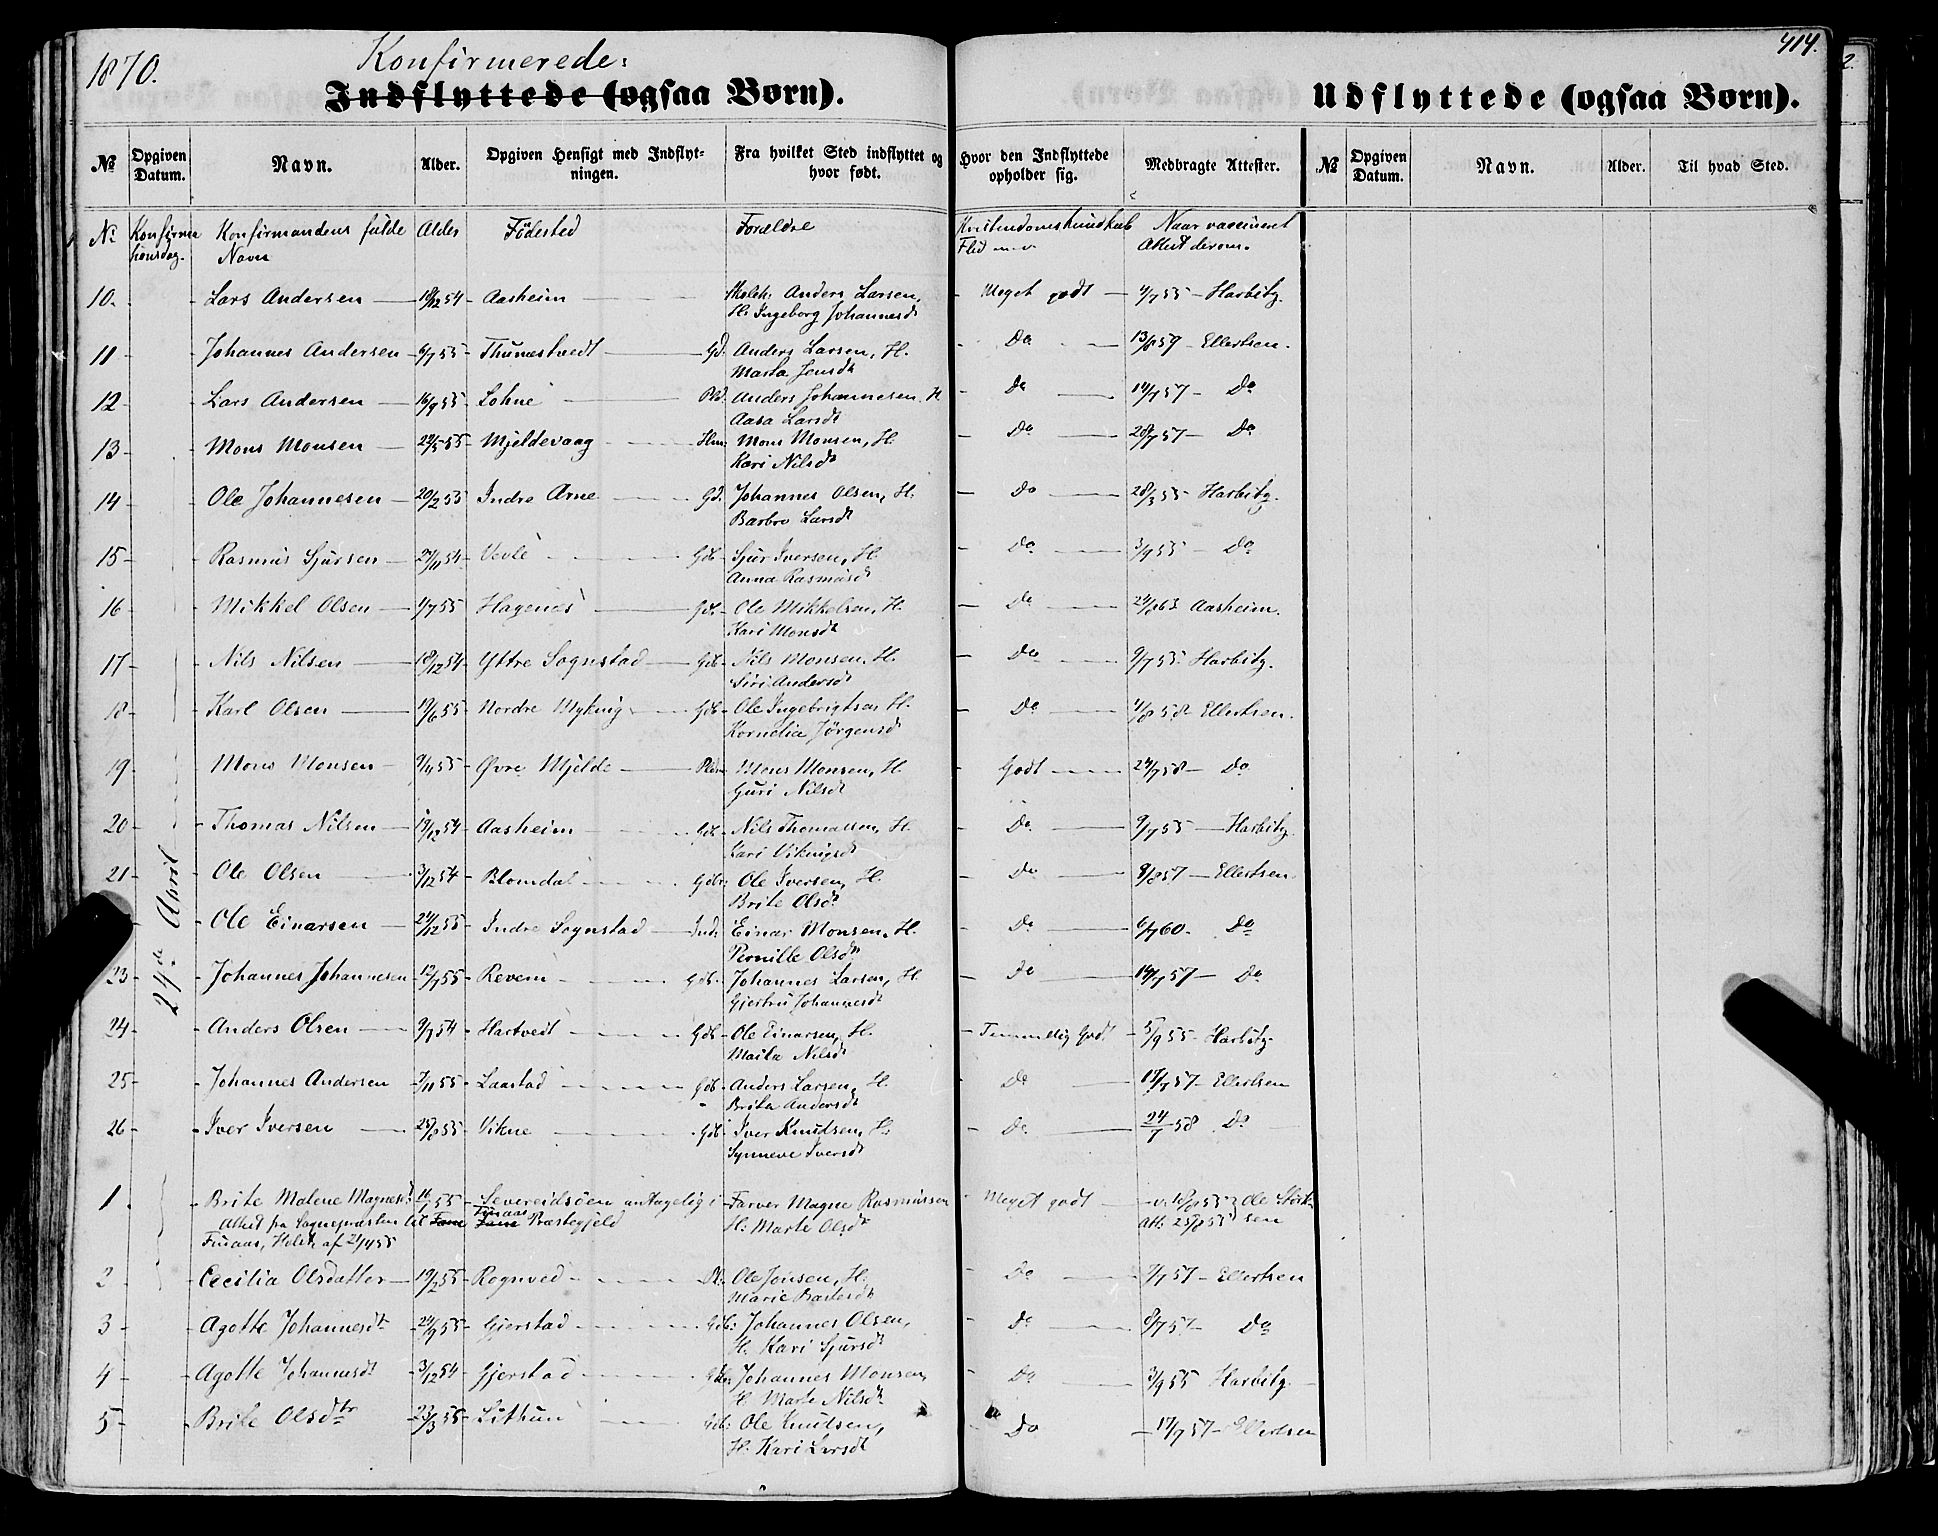 1870.
Konfirmerede:
Indflyttede (ogsaa Børn).
№ Opgiven Datum. Navn. Alder. Opgiven Hensigt med Indflyt-ningen. Fra hvilket Sted indflyttet og hvor født.
Hvor den Indflyttede opholder sig. Medbragte Attester.
414.
Udflyttede (ogsaa Børn).
№ Opgiven Datum. Navn. Alder. Til hvad Sted.
Nr Konfirma Konfirmandens fulde Alder Födested Forældre Kristendomskundskab Naar vaccineret
tionsdag. Navn Flid Attest derom.
24de April
10. Lars Andersen 18/12 54 Aasheim Anders Larsen, Meget godt 4/7 55 Harbitz.
H: Ingeborg Johannesdt
11 Johannes Andersen 6/7 55 Thunestvedt Gd. Anders Larsen, H. Do 13/8 59 Ellertsen.
Marta Jensdt
12 Lars Andersen 16/9 55 Lohne Pld. Anders Johannesen H Do 14/7 57 Do
Aasa Larsdt
13 Mons Monsen 22/5 55 Mjeldevaag Hm: Mons Monsen, H. Do 20/7 57 Do
Kari Nilsdt
14 Ole Johannesen 20/2 55 Indre Arne Gd. Johannes Olsen, H. Do 28/3 55 Harbitz.
Barbro Larsdt
15 Rasmus Sjursen 27/11 54 Vevle Gdb. Sjur Iversen, H. Do 3/9 55 Do
Anna Rasmusdt
16 Mikkel Olsen 1/7 55 Hagenæs Gdb. Ole Mikkelsen, H. Do 24/8 63 Aasheim.
Kari Monsdt
17 Nils Nilsen 18/12 54 Yttre Sognstad Gdb Nils Monsen, H. Do 9/7 55 Harbitz.
Siri Andersdt
18 Karl Olsen 19/6 55 Nordre Myking Gdb. Ole Ingebrigtsen H. Do 4/8 58 Ellertsen.
Kornelia Jørgensdt
19 Mons Monsen 9/4 55 Øvre Mjelde Mons Monsen, H. Godt 24/7 58 Do
Guri Nilsdt
20 Thomas Nilsen 19/12 54 Aasheim Gd. Nils Thomassen, H. Do 9/7 55 Harbitz
Kari Vikingsdt
21 Ole Olsen 3/12 54 Blomdal Gdb. Ole Iversen, H. Do 8/8 57 Ellertsen.
Brite Olsdt
Ole Einarsen 24/12 55 Indre Sognstad Ind. Einar Monsen, H. Do 6/7 60. Do
Pernille Olsdt
23 Johannes Johannesen 12/7 55 Revem Gdb. Johannes Larsen, H. Do 14/7 57 Do
Gjertru Johannesdt
24 Anders Olsen 9/7 54 Hartvedt Gdb Ole Einarsen, H. Temmelig Godt 5/9 55 Harbitz
Marta Nilsdt
25 Johannes Andersen 7/11 55 Laastad Gdb. Anders Larsen, H. Do 17/7 57 Ellertsen
Brita Andersdt
26 Iver Iversen 25/8 55 Vikne Gdb Iver Knudsen, H. Do 24/7 58 Do
Synneve Iversdt
1 Brite Malene Magnesdt 16/7 55 Sevareidsöen antagelig i Farver Magne Rasmussen Meget godt v. 18/8 55 Ole Stört-
Attest fra Sognepræsten til Fane Finaas Fane Præstegjeld H: Marte Olsdr Att: 25/8 55 sen
Finaas, Holst, af 24/4 55
2 Cecilia Olsdatter 19/2 55 Rognved Ole Jonsen, H. Do 7/7 57 Ellertsen
Marie
3 Agotte Johannesdtr 24/9 55 Gjerstad Gdb: Johannes Olsen, Do 8/7 57 Do
H. Kari Sjursdt
4 Agotte Johannesdt 3/12 54 Gjerstad Johannes Monsen, Do 3/9 55 Harbitz
H Marte Nilsdt
5 Brite Olsdtr 23/3 55 Lithun Gdb: Ole Knudsen, Do 17/7 57 Ellertsen
H. Kari Larsdt
2.